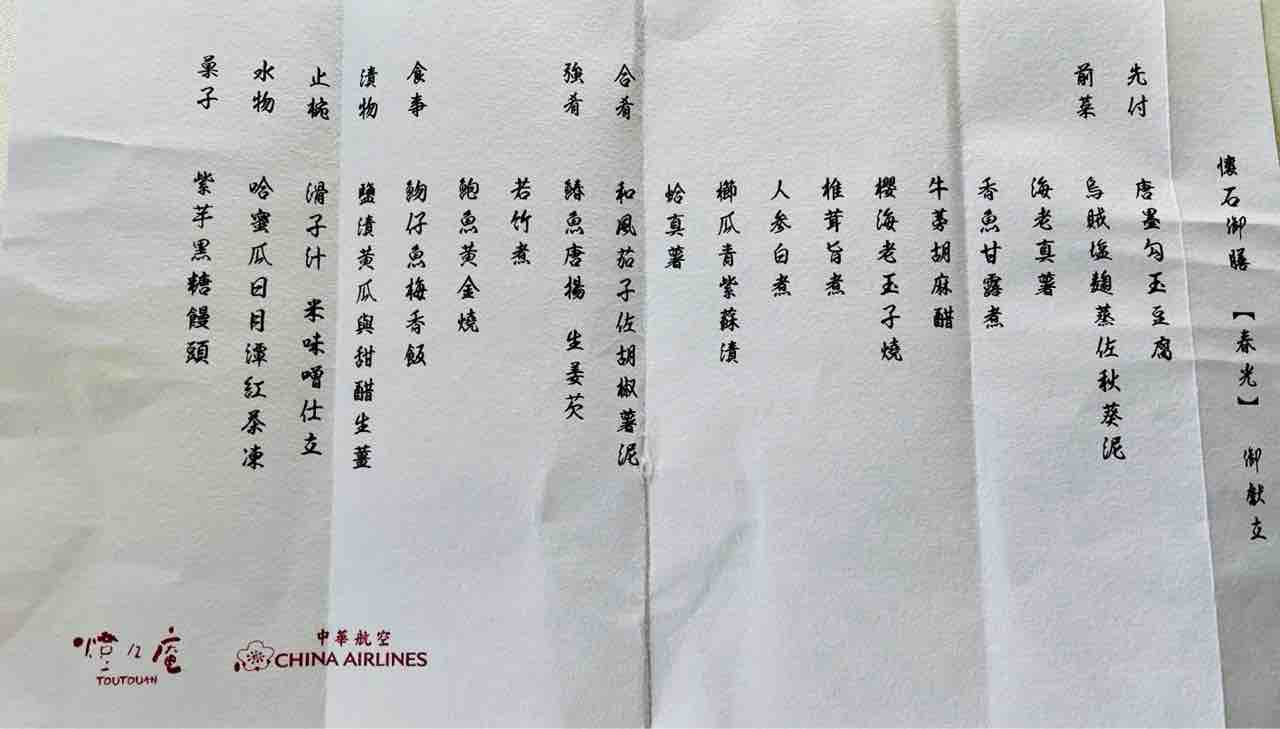 懷石御膳 【春光】 御献立
先付 唐墨勾玉豆腐
前菜 烏賊塩麹蒸佐秋葵泥
海老真薯
香魚甘露煮
牛蒡胡麻醋
櫻海老玉子燒
椎茸旨煮
人参白煮
櫛瓜青紫蘇漬
蛤真薯
合肴 和風茄子佐胡椒薯泥
強肴 鰆魚唐揚 生姜芡
若竹煮
鮑魚黃金燒
食事 魩仔魚梅香飯
漬物 鹽漬黃瓜與甜醋生薑
止椀 滑子汁 米味噌仕立
水物 哈蜜瓜日月潭紅茶凍
菓子 紫芋黑糖饅頭
燈々庵
TOUTOUAN
中華航空
CHINA AIRLINES